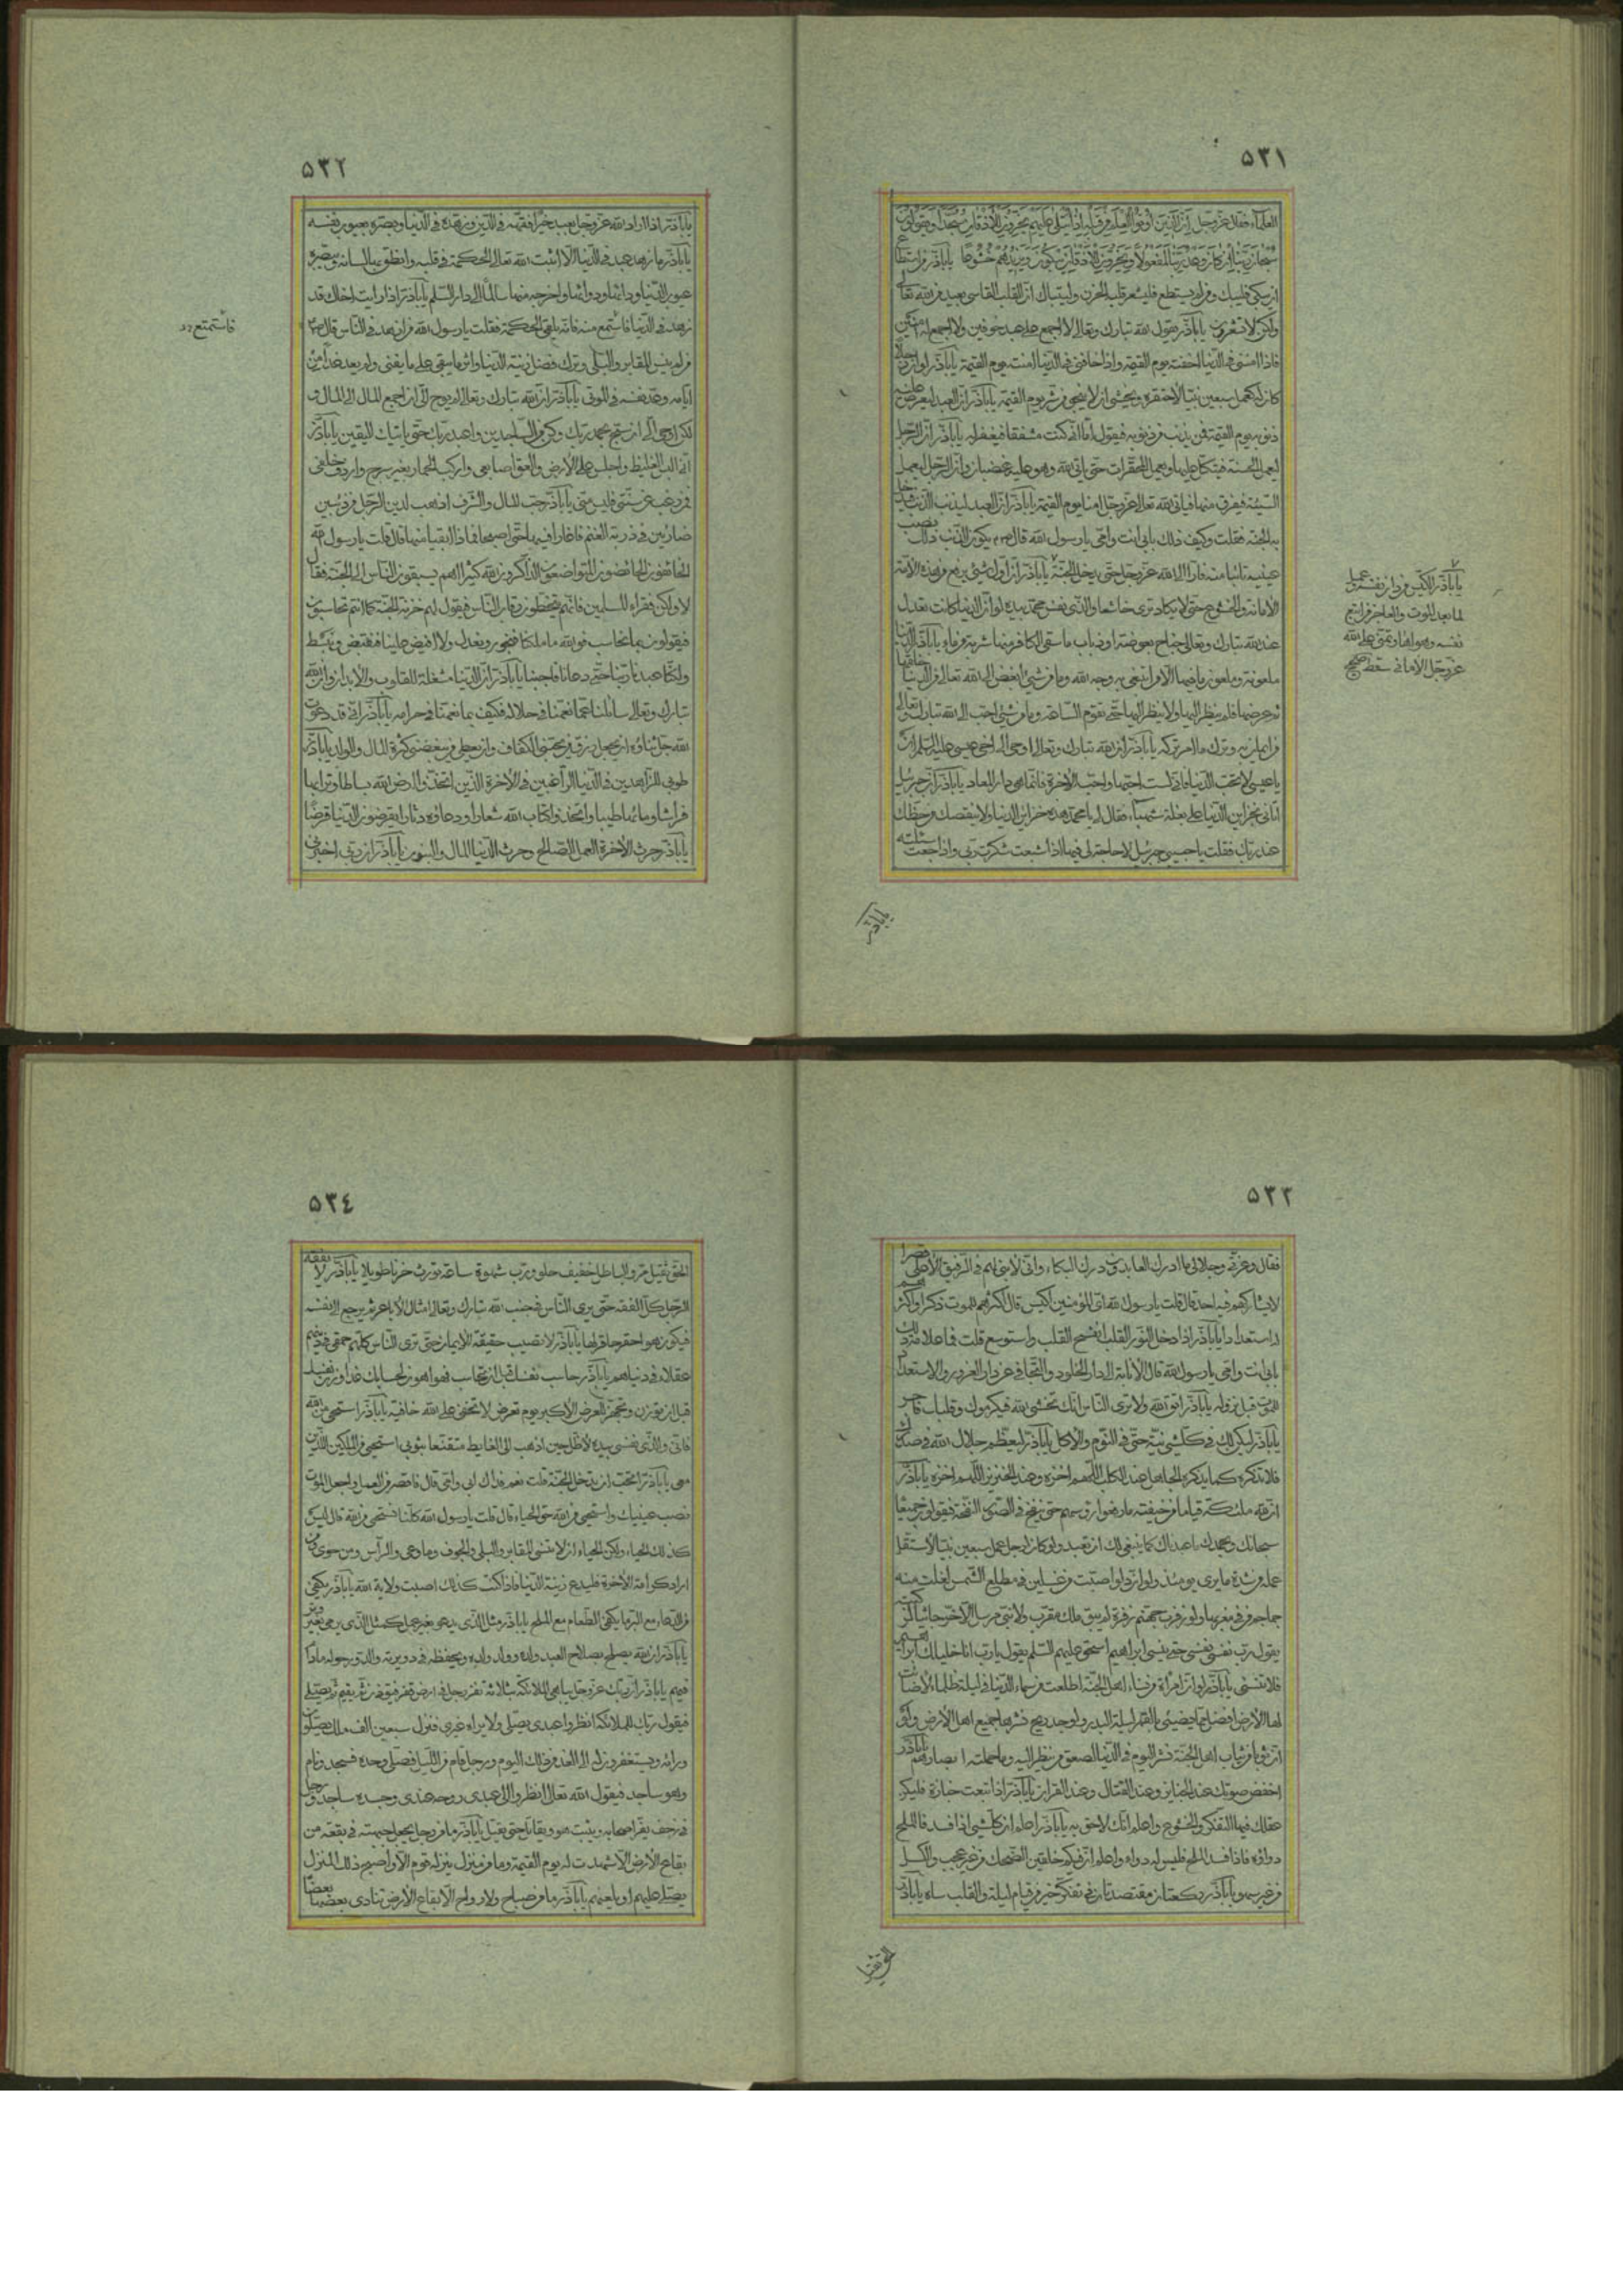 ٥٣١
العلماء فقال عزوجل ان الذين اوتوا العلم من قبله اذا يتلى عليهم يخرون للاذقان سجدا ويقولون
سبحان ربنا ان كان وعد ربنا لمفعولا ويخرون للاذقان يبكون ويزيدهم خشوعا ياباذر من استطاع
ان يبكى فليبك ومن لم يستطع فليشعر قلبه الحزن وليتباك ان القلب القاسى بعيد من الله تعالى
ولكن لا تشعرون ياباذر يقول الله تبارك وتعالى لا اجمع على عبد خوفين ولا اجمع له امنين
فاذا امننى فى الدنيا اخفته يوم القيمة واذا خافنى فى الدنيا امنته يوم القيمة ياباذر لو ان رجلا
كان له كعمل سبعين نبيا لاحتقره وخشى ان لا ينجو من شر يوم القيمة ياباذر ان العبد ليعرض عليه
ذنوبه يوم القيمة فمن يذنب من ذنوبه فيقول اما انى كنت مشفقا فيغفر له ياباذر ان الرجل
ليعمل الحسنة فيتكل عليها ويعمل المحقرات حتى ياتى الله وهو عليه غضبان وان الرجل ليعمل
السيئة فيفرق منها فياتى الله تعالى عزوجل امنا يوم القيمة ياباذر ان العبد ليذنب الذنب فيدخل
به الجنة فقلت وكيف ذلك بابى انت وامى يارسول الله قال ص يكون الذنب ذلك نصب
عينيه تائبا منه فارا الى الله عزوجل حتى يدخل الجنة ياباذر ان اول شئ يرفع من هذه الامة
الامانة والخشوع حتى لا يكاد ترى خاشعا والذى نفس محمد بيده لو ان الدنيا كانت تعدل
عند الله تبارك وتعالى جناح بعوضة او ذباب ما سقى الكافر منها شربة من ماء ياباذر الدنيا
ملعونة وملعون ما فيها الا من ابتغى به وجه الله وما من شئ ابغض الى الله تعالى من الدنيا خلقها
ثم عرضها فلم ينظر اليها ولا ينظر اليها حتى تقوم الساعة وما من شئ احب الى الله تبارك وتعالى
من ايمان به وترك ما امر بتركه ياباذر ان الله تبارك وتعالى اوحى الى اخى عيسى عليه السلم ان
ياعيسى لا تحب الدنيا فانى لست احبها واحب الاخرة فانما هى دار المعاد ياباذر ان جبرئيل
اتانى بخزاين الدنيا على بغلة شهباء فقال لى يا محمد هذه خزاين الدنيا ولا ينقصك من حظك
عند ربك فقلت ياحبيبى جبرئيل لا حاجة لى فيها اذا شبعت شكرت ربى واذا جعت سئلته
ياباذر الكيس من دان نفسه وعمل
لما بعد الموت والعاجز من اتبع
نفسه وهواها وتمنى على الله
عزوجل الامانى سقط صح
ياباذر
٥٣٢
ياباذر اذا اراد الله عزوجل بعبد خيرا فقهه فى الدين وزهده فى الدنيا وبصره بعيوب نفسه
ياباذر ما زهد عبد فى الدنيا الا اثبت الله تعالى الحكمة فى قلبه وانطق بها لسانه ويبصره
عيوب الدنيا وداءها ودواءها واخرجه منها سالما الى دار السلم ياباذر اذا رايت اخاك قد
زهد فى الدنيا فاستمع منه فانه يلقى الحكمة فقلت يارسول الله من ازهد فى الناس قال ص
من لم ينس المقابر والبلى وترك فضل زينة الدنيا واثر ما يبقى على ما يفنى ولم يعد غدا من
ايامه وعد نفسه فى الموتى ياباذر ان الله تبارك وتعالى لم يوح الى ان اجمع المال الى المال و
لكن اوحى الى ان سبح بحمد ربك وكن من الساجدين واعبد ربك حتى ياتيك اليقين ياباذر
انى البس الغليظ واجلس على الارض والعق اصابعى واركب الحمار بغير سرج واردف خلفى
فمن رغب عن سنتى فليس منى ياباذر حب المال والشرف اذهب لدين الرجل من ذئبين
ضاريين فى زربة الغنم فاغارا فيها حتى اصبحا فماذا ابقيا منها قال قلت يارسول الله
الخائفون الخاضعون المتواضعون الذاكرون الله كثيرا اهم يسبقون الناس الى الجنة فقال
لا ولكن فقراء المسلمين فانهم يتخطون رقاب الناس فيقول لهم خزنة الجنة كما انتم تحاسبون
فيقولون بما نحاسب فوالله ما ملكنا فنجور ونعدل ولا افيض علينا فنقبض ونبسط
ولكنا عبدنا ربنا حتى دعانا فاجبنا ياباذر ان الدنيا مشغلة للقلوب والابدان وان الله
تبارك وتعالى سائلنا عما نعمنا فى حلاله فكيف بما نعمنا فى حرامه ياباذر انى قد دعوت
الله جل ثناؤه ان يجعل رزق من يحبنى الكفاف وان يعطى من يبغضنى كثرة المال والولد ياباذر
طوبى للزاهدين فى الدنيا الراغبين فى الاخرة الذين اتخذوا ارض الله بساطا وترابها
فراشا وماءها طيبا واتخذوا كتاب الله شعارا ودعاؤه دثارا يقرضون الدنيا قرضا
ياباذر حرث الاخرة العمل الصالح وحرث الدنيا المال والبنون ياباذر ان ربى اخبرنى
فاستمتع
٥٣٣
فقال وعزتى وجلالى ما ادرك العابدون درك البكاء وانى لابنى لهم فى الرفيق الاعلى قصرا
لا يشاركهم فيه احد قال قلت يارسول الله اى المؤمنين اكيس قال اكثرهم للموت ذكرا واكثرهم
له استعدادا ياباذر اذا دخل النور القلب انفسح القلب واستوسع قلت فما علامة ذلك
بابى انت وامى يارسول الله قال الانابة الى دار الخلود والتجافى عن دار الغرور والاستعداد
للموت قبل نزوله ياباذر اتق الله ولا ترى الناس انك تخشى الله فيكرموك وقلبك فاجر
ياباذر ليكن لك فى كل شئ نية حتى فى النوم والاكل ياباذر ليعظم جلال الله فى صدرك
فلا تذكره كما يذكره الجاهل عند الكلب اللهم اخزه وعند الخنزير اللهم اخزه ياباذر
ان لله ملئكة قياما من خيفته ما رفعوا رؤسهم حتى ينفخ فى الصور النفخة فيقولون جميعا
سبحانك وبحمدك ما عبدناك كما ينبغى لك ان تعبد ولو كان لرجل عمل سبعين نبيا لاستقل
عمله من شدة ما يرى يومئذ ولو ان دلوا صبت من غسلين فى مطلع الشمس لغلت منه
جماجم من فى مغربها ولو زفرت جهنم زفرة لم يبق ملك مقرب ولا نبى مرسل الا خر جاثيا لركبتيه
يقول رب نفسى نفسى حتى ينسى ابراهيم اسحق عليهم السلم يقول يارب انا خليلك ابراهيم
فلا تنسنى ياباذر لو ان امراة من نساء اهل الجنة اطلعت من سماء الدنيا فى ليلة ظلماء لاضائت
لها الارض افضل مما يضيئ بالقمر ليلة البدر ولوجد ريح نشرها جميع اهل الارض ولو
ان ثوبا من ثياب اهل الجنة نشر اليوم فى الدنيا لصعق من ينظر اليه وما حملته ابصارهم ياباذر
اخفض صوتك عند الجنايز وعند القتال وعند القران ياباذر اذا تبعت جنازة فليكن
عقلك فيها التفكر والخشوع واعلم انك لاحق به ياباذر اعلم ان كل شئ اذا فسد فالملح
دواؤه فاذا فسد الملح فليس له دواء واعلم ان فيكم خلقين الضحك من غير عجب والكسل
من غير سهو ياباذر ركعتان مقتصدتان فى تفكر خير من قيام ليلة والقلب ساه ياباذر
الحق ثقيل
٥٣٤
الحق ثقيل مر والباطل خفيف حلو ورب شهوة ساعة تورث حزنا طويلا ياباذر لا يفقه
الرجل كل الفقه حتى يرى الناس فى جنب الله تبارك وتعالى امثال الاباعر ثم يرجع الى نفسه
فيكون هو احقر حاقر لها ياباذر لا تصيب حقيقة الايمان حتى ترى الناس كلهم حمقى فى دينهم
عقلاء فى دنياهم ياباذر حاسب نفسك قبل ان تحاسب فهو اهون لحسابك غدا وزن نفسك
قبل ان توزن وتجهز للعرض الاكبر يوم تعرض لا تخفى على الله خافية ياباذر استحى من الله
فانى والذى نفسى بيده لاظل حين اذهب الى الغايط متقنعا بثوبى استحى من الملكين الذين
معى ياباذر اتحب ان تدخل الجنة قلت نعم فداك ابى وامى قال فاقصر من العمل واجعل الموت
نصب عينيك واستحى من الله حق الحياء قال قلت يارسول الله كلنا نستحى من الله قال ليس
كذلك الحياء ولكن الحياء ان لا تنسى المقابر والبلى والجوف وما وعى والراس ومن حوى ومن
اراد كرامة الاخرة فليدع زينة الدنيا فاذا كنت كذلك اصبت ولاية الله ياباذر يكفى
من الدعاء مع البر ما يكفى الطعام مع الملح ياباذر مثل الذى يدعى بغير عمل كمثل الذى يرمى بغير وتر
ياباذر ان الله يصلح بصلاح العبد ولده وولد ولده ويحفظه فى دويرته والدور حوله مادام
فيهم ياباذر ان ربك عزوجل يباهى الملائكة بثلاثة نفر رجل فى ارض قفر فيؤذن ثم يقيم ثم يصلى
فيقول ربك للملائكة انظروا عبدى يصلى ولا يراه غيرى فينزل سبعين الف ملك يصلون
ورائه ويستغفرون له الى الغد من ذلك اليوم ورجل قام من الليل فصلى وحده فسجد ونام
وهو ساجد فيقول الله تعالى انظروا الى عبدى روحه عندى وجسده ساجد ورجل
فى زحف يفر اصحابه ويثبت هو ويقاتل حتى يقتل ياباذر ما من رجل يجعل جبهته فى بقعة من
بقاع الارض الا شهدت له يوم القيمة وما من منزل ينزله قوم الا واصبح ذلك المنزل
يصلى عليهم او يلعنهم ياباذر ما من صباح ولا رواح الا بقاع الارض تنادى بعضها بعضا